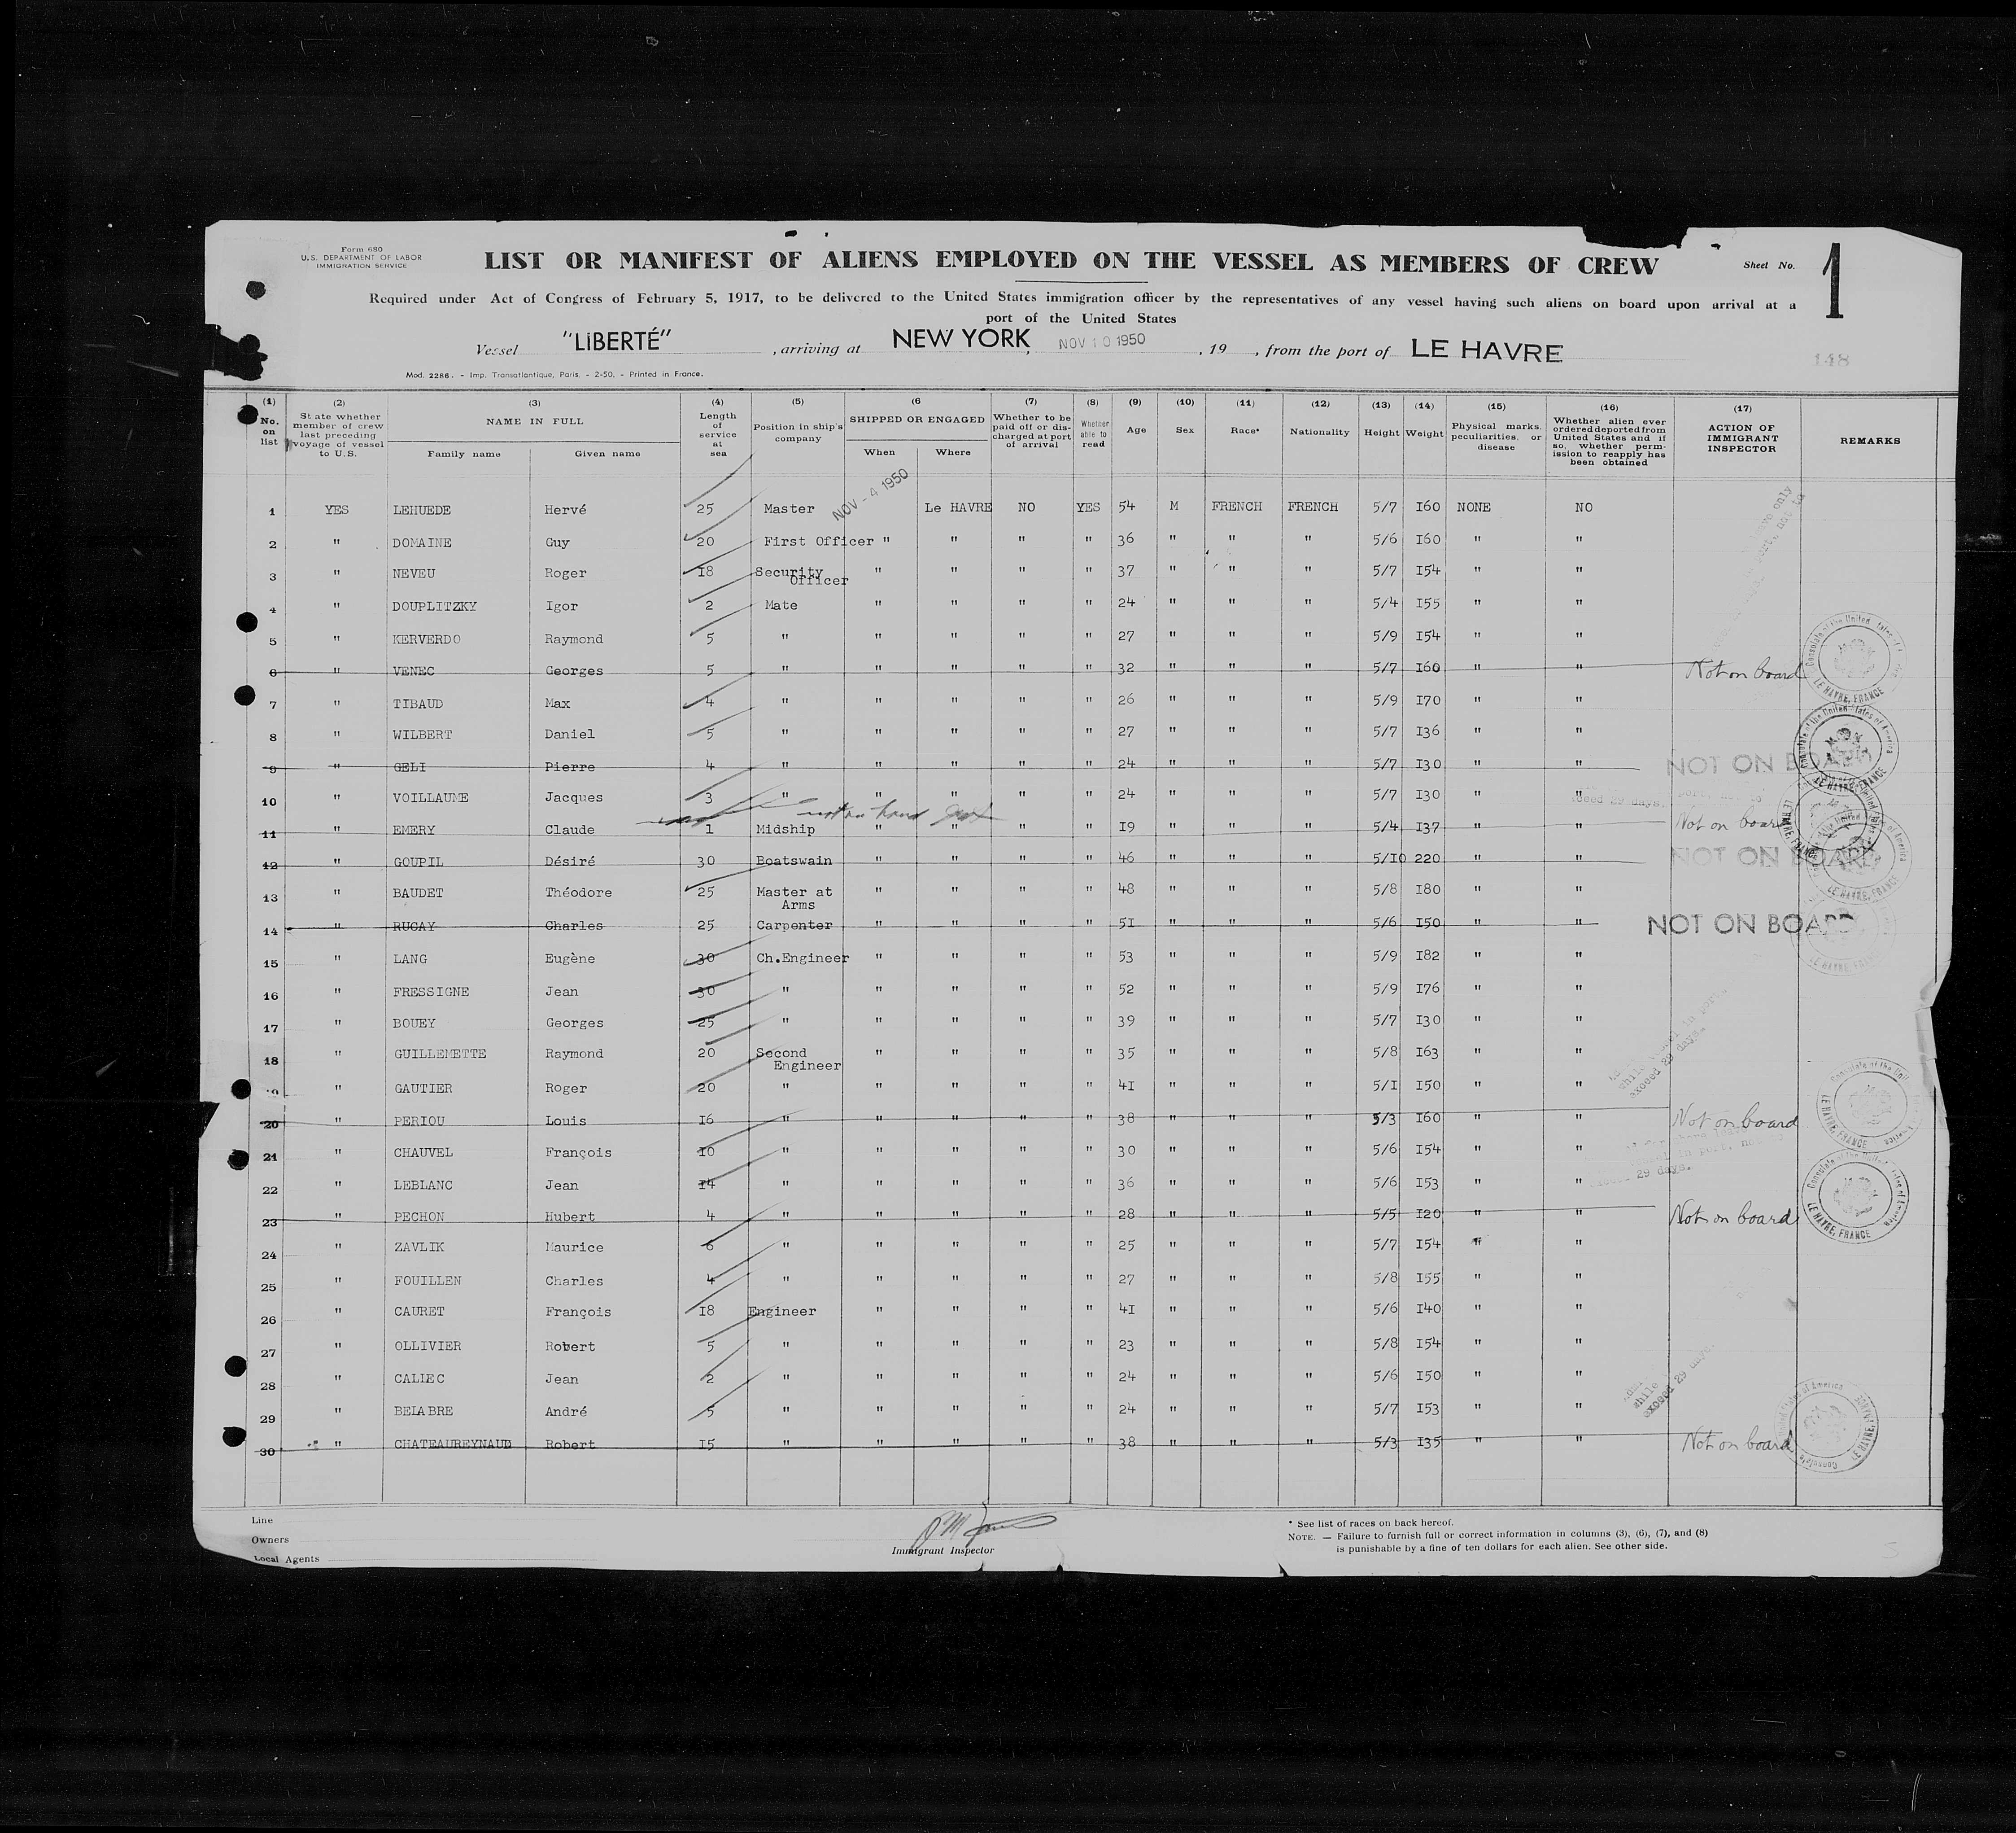 Form 680
U.S. DEPARTMENT OF LABOR
IMMIGRATION SERVICE
LIST OR MANIFEST OF ALIENS EMPLOYED ON THE VESSEL AS MEMBERS OF CREW
Sheet No. 1
Required under Act of Congress of February 5, 1917, to be delivered to the United States immigration officer by the representatives of any vessel having such aliens on board upon arrival at a
port of the United States
Vessel "LIBERTÉ", arriving at NEW YORK, NOV 10 1950, 19 , from the port of LE HAVRE
148
Mod. 2286. - Imp. Transatlantique, Paris. - 2-50. - Printed in France.
(1) No. on list (2) State whether member of crew last preceding voyage of vessel to U.S. (3) NAME IN FULL Family name Given name (4) Length of service at sea (5) Position in ship's company (6 SHIPPED OR ENGAGED When Where (7) Whether to be paid off or discharged at port of arrival (8) Whether able to read (9) Age (10) Sex (11) Race* (12) Nationality (13) Height (14) Weight (15) Physical marks, peculiarities, or disease (16) Whether alien ever ordered deported from United States and if so, whether permission to reapply has been obtained (17) ACTION OF IMMIGRANT INSPECTOR REMARKS
1 YES LEHUEDE Hervé 25 Master NOV - 4 1950 Le HAVRE NO YES 54 M FRENCH FRENCH 5/7 160 NONE NO
2 " DOMAINE Guy 20 First Officer " " " " 36 " " " 5/6 160 " "
3 " NEVEU Roger 18 Security Officer " " " " 37 " " " 5/7 154 " "
4 " DOUPLITZKY Igor 2 Mate " " " " 24 " " " 5/4 155 " "
5 " KERVERDO Raymond 5 " " " " " 27 " " " 5/9 154 " "
6 " VENEC Georges 5 " " " " " 32 " " " 5/7 160 " " Not on board
7 " TIBAUD Max 4 " " " " " 26 " " " 5/9 170 " "
8 " WILBERT Daniel 5 " " " " " 27 " " " 5/7 136 " "
9 " GELI Pierre 4 " " " " " 24 " " " 5/7 130 " " NOT ON BOARD
10 " VOILLAUME Jacques 3 " " " " " 24 " " " 5/7 130 " "
exceed 29 days.
11 " EMERY Claude 1 Midship " " " " 19 " " " 5/4 137 " " Not on board
not on board
12 " GOUPIL Désiré 30 Boatswain " " " " 46 " " " 5/10 220 " " NOT ON BOARD
13 " BAUDET Théodore 25 Master at Arms " " " " 48 " " " 5/8 180 " "
14 " RUCAY Charles 25 Carpenter " " " " 51 " " " 5/6 150 " " NOT ON BOARD
15 " LANG Eugène 30 Ch.Engineer " " " " 53 " " " 5/9 182 " "
16 " FRESSIGNE Jean 30 " " " " " 52 " " " 5/9 176 " "
17 " BOUEY Georges 25 " " " " " 39 " " " 5/7 130 " "
18 " GUILLEMETTE Raymond 20 Second Engineer " " " " 35 " " " 5/8 163 " "
exceed 29 days.
19 " GAUTIER Roger 20 " " " " " 41 " " " 5/1 150 " "
20 " PERIOU Louis 16 " " " " " 38 " " " 5/3 160 " " Not on board
21 " CHAUVEL François 10 " " " " " 30 " " " 5/6 154 " "
exceed 29 days.
22 " LEBLANC Jean 14 " " " " " 36 " " " 5/6 153 " "
23 " PECHON Hubert 4 " " " " " 28 " " " 5/5 120 " " Not on board
24 " ZAVLIK Maurice 6 " " " " " 25 " " " 5/7 154 " "
25 " FOUILLEN Charles 4 " " " " " 27 " " " 5/8 155 " "
26 " CAURET François 18 Engineer " " " " 41 " " " 5/6 140 " "
27 " OLLIVIER Robert 5 " " " " " 23 " " " 5/8 154 " "
28 " CALIEC Jean 2 " " " " " 24 " " " 5/6 150 " "
exceed 29 days.
29 " BELABRE André 5 " " " " " 24 " " " 5/7 153 " "
30 " CHATEAUREYNAUD Robert 15 " " " " " 38 " " " 5/3 135 " " Not on board
Consulate of the United States of America
LE HAVRE, FRANCE
Line
Owners
Local Agents
Immigrant Inspector
* See list of races on back hereof.
NOTE. — Failure to furnish full or correct information in columns (3), (6), (7), and (8)
is punishable by a fine of ten dollars for each alien. See other side.